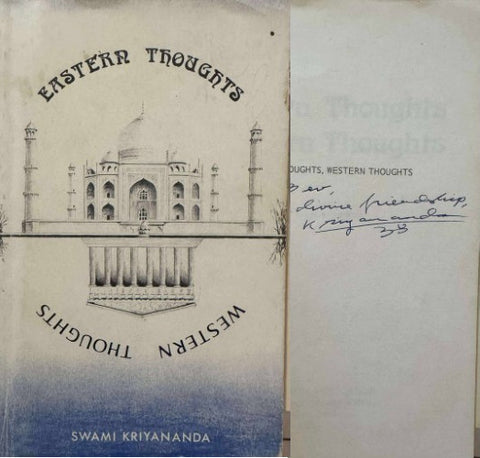 EASTERN THOUGHTS
WESTERN THOUGHTS
SWAMI KRIYANANDA
Thoughts
Thoughts
OUGHTS, WESTERN THOUGHTS
Bev,
divine friendship,
Kriyananda